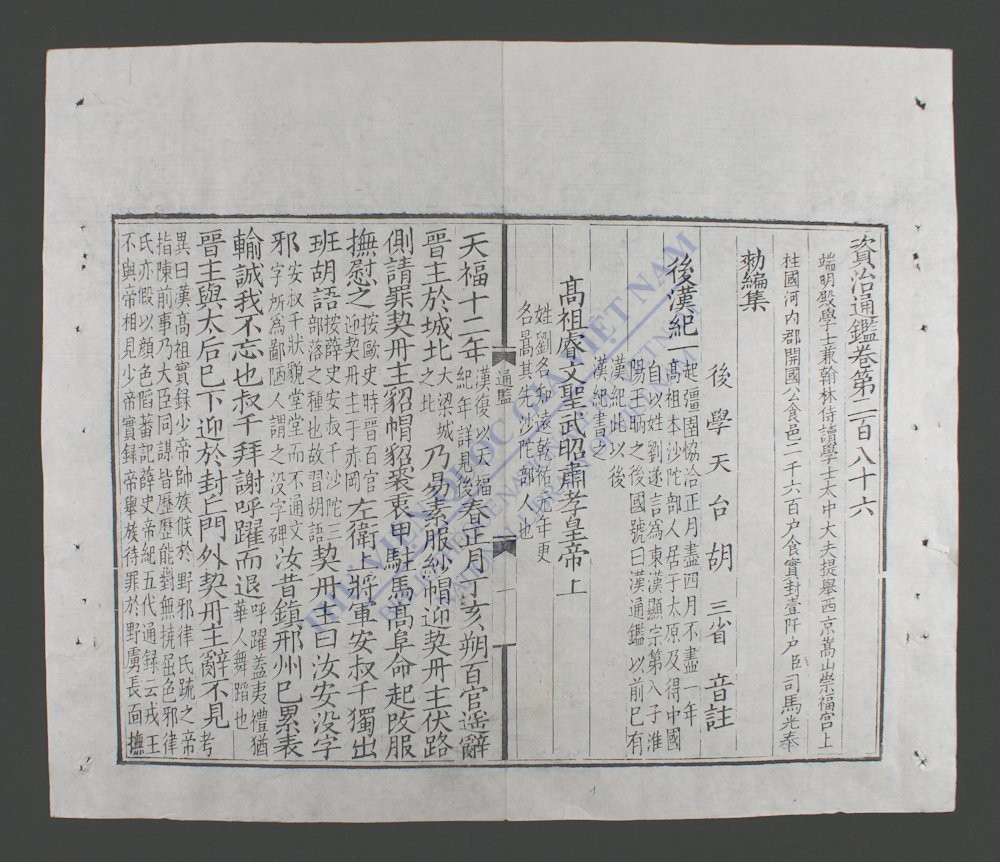 資治通鑑卷第二百八十六
端明殿學士兼翰林侍讀學士太中大夫提舉西京嵩山崇福宮上
柱國河内郡開國公食邑二千六百户食實封壹阡户臣司馬光奉
勑編集
後學天台胡三省音註
後漢紀一
起彊圉協洽正月盡四月不盡一年
髙祖本沙陀部人居于太原及得中國
自以姓劉遂言爲東漢顯宗第八子淮
陽王昞之後國號曰漢通鑑以前已有
漢紀此以後
漢紀書之
髙祖睿文聖武昭肅孝皇帝上
姓劉名知遠乾祐元年更
名暠其先沙陀部人也
通鑑
一
天福十二年漢復以天福紀年詳見後春正月丁亥朔百官遥辭
晉主於城北大梁城之北乃易素服紗帽迎契丹主伏路
側請罪契丹主貂帽貂裘衷甲駐馬髙阜命起改服
撫慰之按歐史時晉百官迎契丹主于赤岡左衛上將軍安叔千獨出
班胡語按薛史安叔千沙陀三部落之種也故習胡語契丹主曰汝安没字
邪安叔千狀貌堂堂而不通文字所爲鄙陋人謂之没字碑汝昔鎮邢州巳累表
輸誠我不忘也叔千拜謝呼躍而退呼躍蓋夷禮猶華人舞蹈也
晉主與太后巳下迎於封丘門外契丹主辭不見考
異曰漢髙祖實録少帝帥族候於野邪律氏疏之帝
指陳前事乃大臣同謀皆歷歷能對無撓屈色邪律
氏亦假以顔色陷蕃記薛史帝紀五代通録云戎王
不與帝相見少帝實録帝舉族待罪於野虜長面撫
THƯ VIỆN QUỐC GIA VIỆT NAM
NATIONAL LIBRARY OF VIETNAM